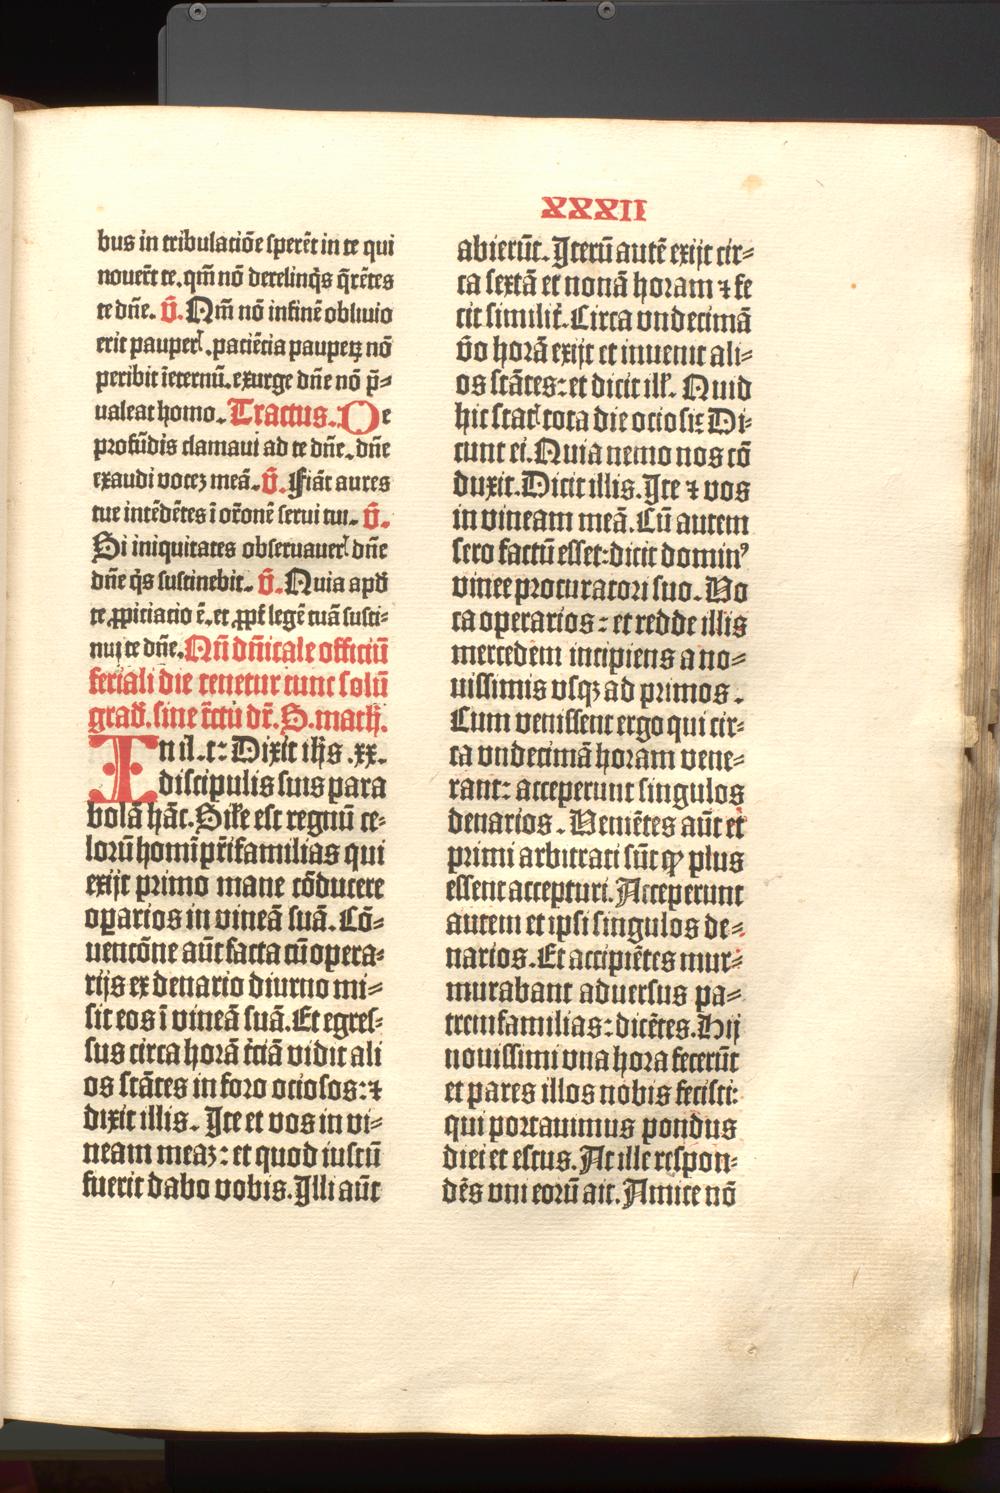 XXXII
bus in tribulatiōe sperēt in te qui
nouerūt te. qm̄ nō derelinq̄s q̄rētes
te dn̄e. V̄. Qm̄ nō in finē obliuio
erit pauperꝭ. paciētia pauperꝝ nō
peribit īeternū. exurge dn̄e nō p̄⸗
ualeat homo. Tractus. De
profūdis clamaui ad te dn̄e. dn̄e
exaudi vocez meā. V̄. Fiāt aures
tue intēdētes ī or̄onē serui tui. V̄.
Si iniquitates obseruauerꝭ dn̄e
dn̄e q̄s sustinebit. V̄. Quia apd̄
te ꝓpiciacio ē. et ꝓpt̄ legē tuā susti⸗
nui te dn̄e. Qn̄ dn̄icale officiū
feriali die tenetur tunc solū
grad̄. sine tc̄tu dr̄. S. math.
In il. t: Dixit ih̄s .xx.
discipulis suis para
bolā hāc. Sil̄e est regnū ce⸗
lorū homī pr̄ifamilias qui
exijt primo mane cōducere
oꝑarios in vineā suā. Cō⸗
uentōne aūt facta cū opera⸗
rijs ex denario diurno mi⸗
sit eos ī vineā suā. Et egres⸗
sus circa horā tc̄iā vidit ali
os stātes in foro ociosos: ⁊
dixit illis. Ite et vos in vi⸗
neam meaz: et quod iustū
fuerit dabo vobis. Illi aūt
abierūt. Iterū autē exijt cir⸗
ca sextā et nonā horam ⁊ fe
cit similit̄. Circa vndecimā
v̄o horā exijt et inuenit ali⸗
os stātes: et dicit ill̄. Quid
hic statꝭ tota die ociosi: Di⸗
cunt ei. Quia nemo nos cō
duxit. Dicit illis. Ite ⁊ vos
in vineam meā. Cū autem
sero factū esset: dicit dominꝰ
vinee procuratori suo. Vo
ca operarios: et redde illis
mercedem incipiens a no⸗
uissimis vsqꝫ ad primos.
Cum venissent ergo qui cir⸗
ca vndecimā horam vene⸗
rant: acceperunt singulos
denarios. Veniētes aūt et
primi arbitrati sūt ꝙ plus
essent accepturi. Acceperunt
autem et ipsi singulos de⸗
narios. Et accipiētes mur⸗
murabant aduersus pa⸗
tremfamilias: dicētes. Hij
nouissimi vna hora fecerūt
et pares illos nobis fecisti:
qui portauimus pondus
diei et estus. At ille respon⸗
dēs vni eorū ait. Amice nō